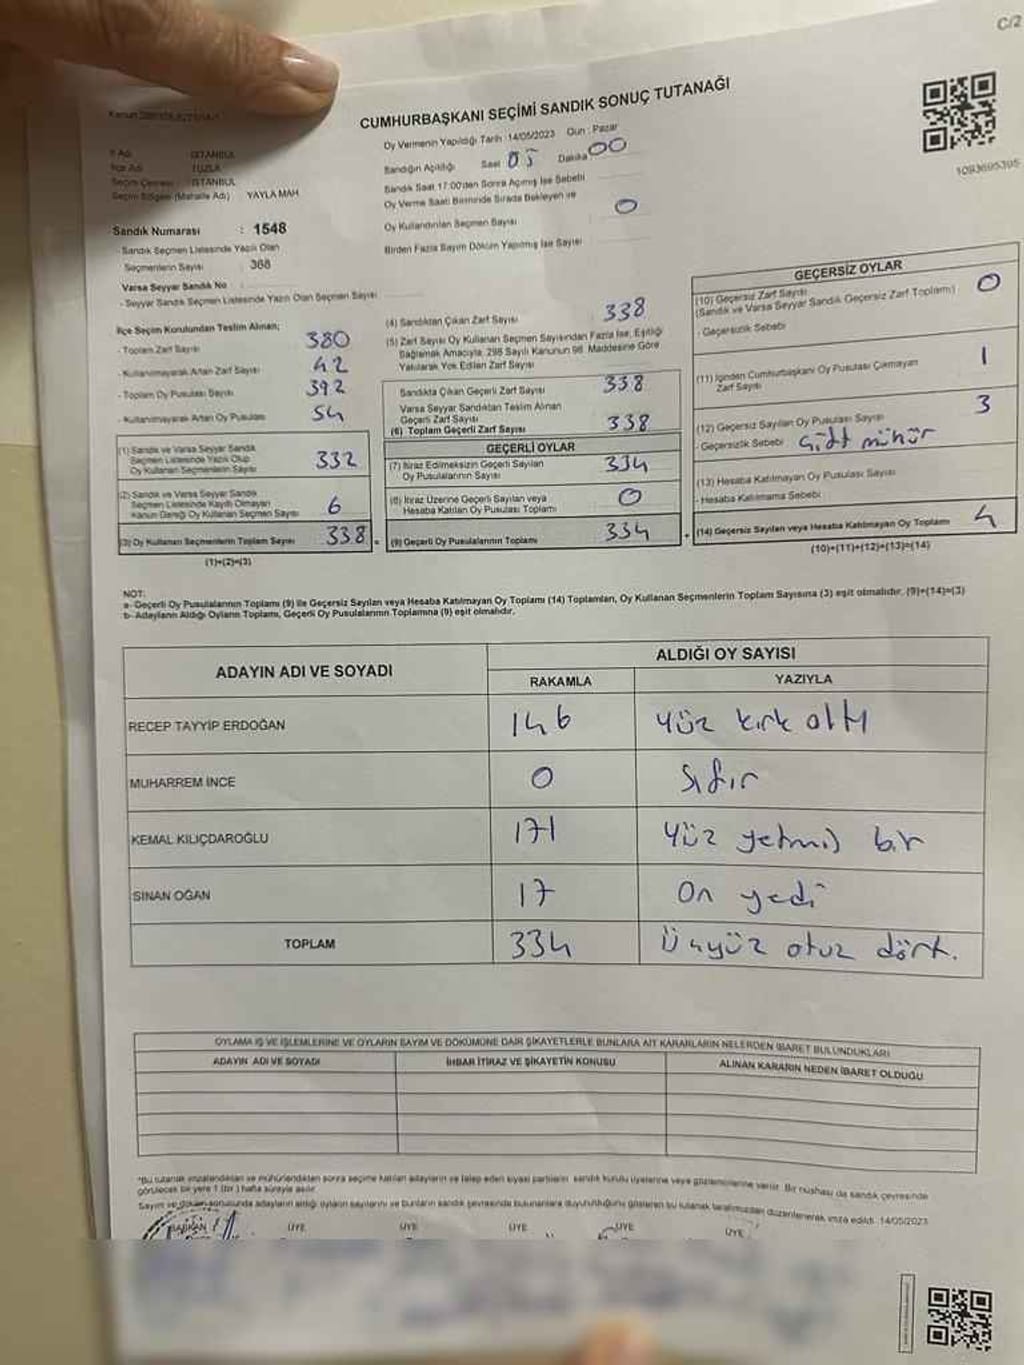 C/2
CUMHURBAŞKANI SEÇİMİ SANDIK SONUÇ TUTANAĞI
1093695395
İl Adı : İSTANBUL
İlçe Adı : TUZLA
Seçim Çevresi : İSTANBUL
Seçim Bölgesi (Mahalle Adı) YAYLA MAH
Sandık Numarası : 1548
- Sandık Seçmen Listesinde Yazılı Olan
Seçmenlerin Sayısı : 368
Varsa Seyyar Sandık No :
- Seyyar Sandık Seçmen Listesinde Yazılı Olan Seçmen Sayısı
Oy Vermenin Yapıldığı Tarih :14/05/2023 Gün : Pazar
Sandığın Açıldığı Saat 05 Dakika 00
Sandık Saat 17:00'den Sonra Açılmış İse Sebebi
Oy Verme Saati Bitiminde Sırada Bekleyen ve
Oy Kullandırılan Seçmen Sayısı 0
Birden Fazla Sayım Döküm Yapılmış İse Sayısı
İlçe Seçim Kurulundan Teslim Alınan;
- Toplam Zarf Sayısı 380
- Kullanılmayarak Artan Zarf Sayısı 42
- Toplam Oy Pusulası Sayısı 392
- Kullanılmayarak Artan Oy Pusulası 54
(1) Sandık ve Varsa Seyyar Sandık
Seçmen Listesinde Yazılı Olup
Oy Kullanan Seçmenlerin Sayısı 332
(2) Sandık ve Varsa Seyyar Sandık
Seçmen Listesinde Kayıtlı Olmayan
Kanun Gereği Oy Kullanan Seçmen Sayısı 6
(3) Oy Kullanan Seçmenlerin Toplam Sayısı 338 =
(1)+(2)=(3)
(4) Sandıktan Çıkan Zarf Sayısı 338
(5) Zarf Sayısı Oy Kullanan Seçmen Sayısından Fazla İse, Eşitliği
Sağlamak Amacıyla, 298 Sayılı Kanunun 98. Maddesine Göre
Yakılarak Yok Edilen Zarf Sayısı
Sandıkta Çıkan Geçerli Zarf Sayısı 338
Varsa Seyyar Sandıktan Teslim Alınan
Geçerli Zarf Sayısı
(6) Toplam Geçerli Zarf Sayısı 338
GEÇERLİ OYLAR
(7) İtiraz Edilmeksizin Geçerli Sayılan
Oy Pusulalarının Sayısı 334
(8) İtiraz Üzerine Geçerli Sayılan veya
Hesaba Katılan Oy Pusulası Toplamı 0
(9) Geçerli Oy Pusulalarının Toplamı 334 +
GEÇERSİZ OYLAR
(10) Geçersiz Zarf Sayısı 0
(Sandık ve Varsa Seyyar Sandık Geçersiz Zarf Toplamı)
- Geçersizlik Sebebi
(11) İçinden Cumhurbaşkanı Oy Pusulası Çıkmayan
Zarf Sayısı 1
(12) Geçersiz Sayılan Oy Pusulası Sayısı 3
- Geçersizlik Sebebi Çift mühür
(13) Hesaba Katılmayan Oy Pusulası Sayısı
- Hesaba Katılmama Sebebi
(14) Geçersiz Sayılan veya Hesaba Katılmayan Oy Toplamı 4
(10)+(11)+(12)+(13)=(14)
NOT:
a- Geçerli Oy Pusulalarının Toplamı (9) ile Geçersiz Sayılan veya Hesaba Katılmayan Oy Toplamı (14) Toplamları, Oy Kullanan Seçmenlerin Toplam Sayısına (3) eşit olmalıdır. (9)+(14)=(3)
b- Adayların Aldığı Oyların Toplamı, Geçerli Oy Pusulalarının Toplamına (9) eşit olmalıdır.
ADAYIN ADI VE SOYADI ALDIĞI OY SAYISI
RAKAMLA YAZIYLA
RECEP TAYYİP ERDOĞAN 146 Yüz kırk altı
MUHARREM İNCE 0 Sıfır
KEMAL KILIÇDAROĞLU 171 Yüz yetmiş bir
SİNAN OĞAN 17 On yedi
TOPLAM 334 Üçyüz otuz dört.
OYLAMA İŞ VE İŞLEMLERİNE VE OYLARIN SAYIM VE DÖKÜMÜNE DAİR ŞİKAYETLERLE BUNLARA AİT KARARLARIN NELERDEN İBARET BULUNDUKLARI
ADAYIN ADI VE SOYADI İHBAR İTİRAZ VE ŞİKAYETİN KONUSU ALINAN KARARIN NEDEN İBARET OLDUĞU
*Bu tutanak imzalandıktan ve mühürlendikten sonra seçime katılan adayların ve talep eden siyasi partilerin sandık kurulu üyelerine veya gözlemcilerine verilir. Bir nüshası da sandık çevresinde
görülecek bir yere 1 (bir) hafta süreyle asılır.
Sayım ve döküm sonucunda adayların aldığı oyların sayılarını ve bunların sandık çevresinde bulunanlara duyurulduğunu gösteren bu tutanak tarafımızdan düzenlenerek imza edildi. 14/05/2023
BAŞKAN ÜYE ÜYE ÜYE ÜYE ÜYE